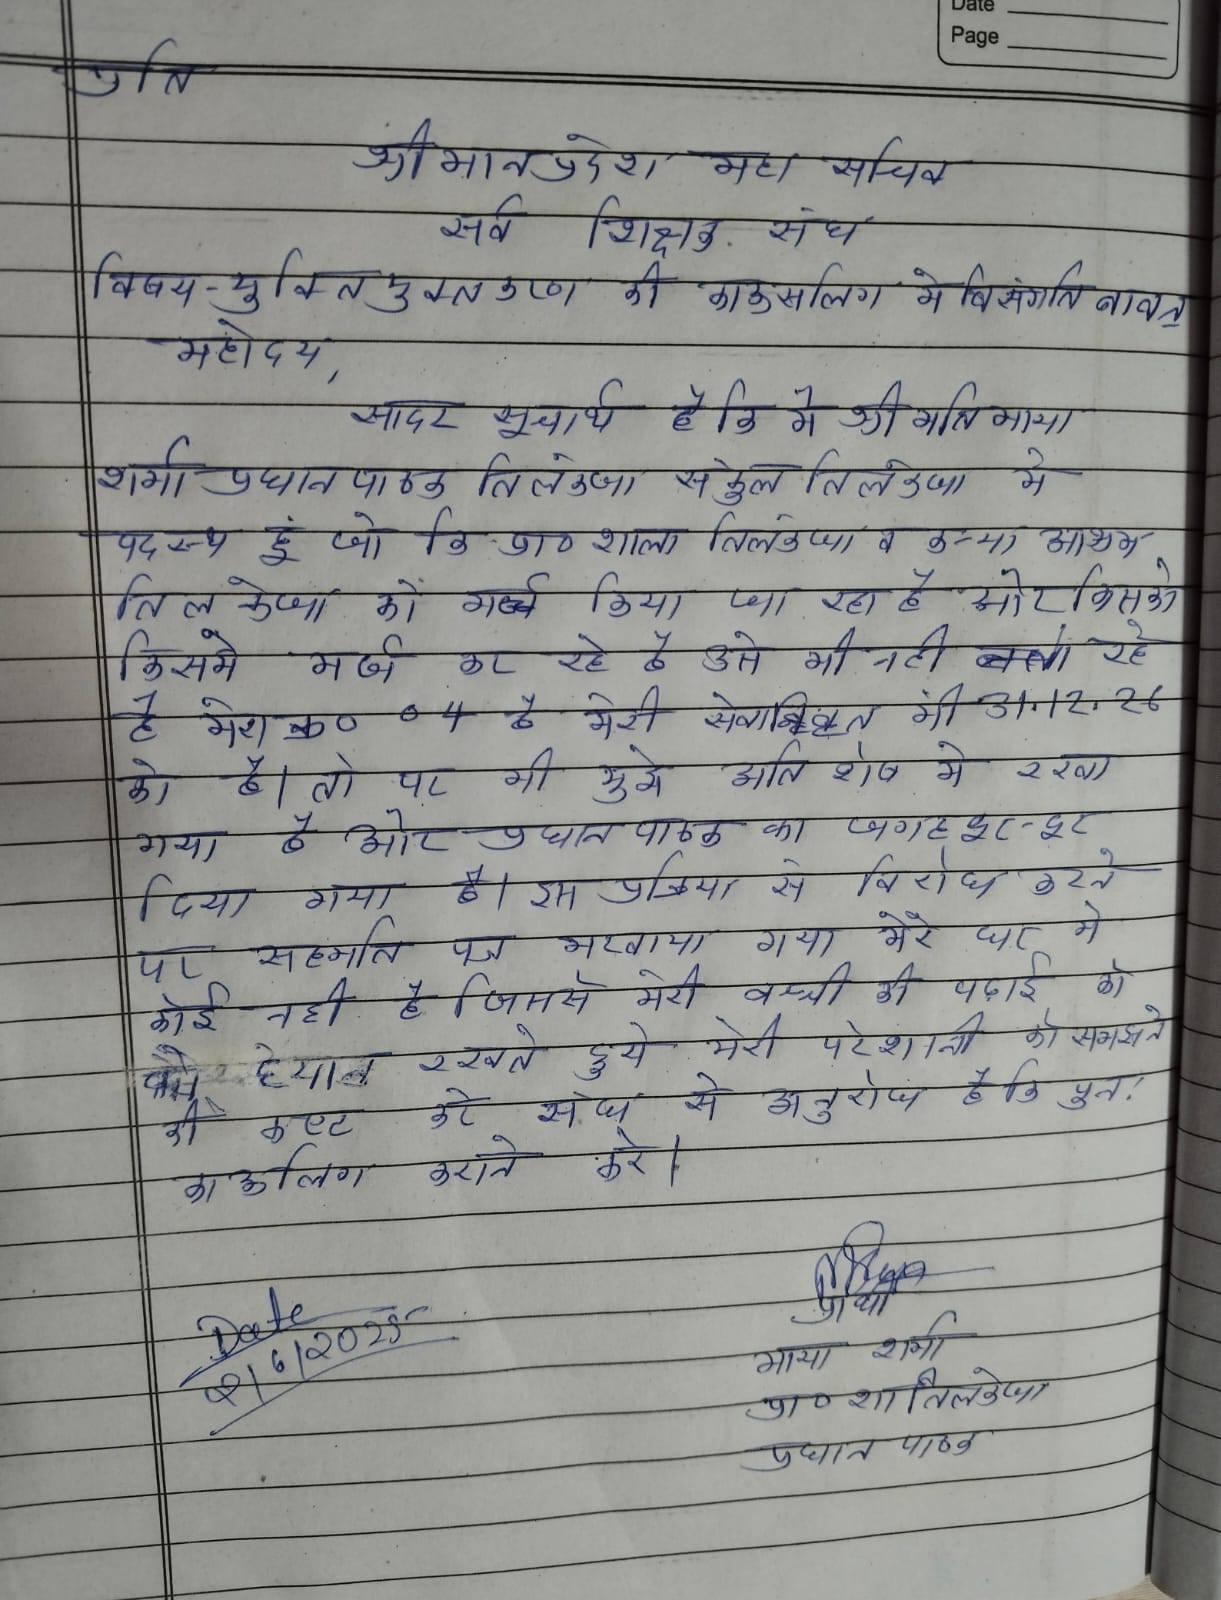 Date
Page
प्रति
श्रीमान प्रदेश महा सचिव
सर्व शिक्षक संघ
विषय - युक्तियुक्तकरण की काऊसलिग मे विसंगति बाबत्
महोदय,
सादर सूचार्थ है कि मे श्रीमति माया
शर्मा प्रधान पाठक तिलकेजा संकुल तिलकेजा मे
पदस्थ हूं जो कि प्रा० शाला तिलकेजा व कन्या आश्रम
तिलकेजा को मर्ज किया जा रहा है ओर किसको
किसमे मर्ज कर रहे है उसे भी नही बता रहे
है मेरा क्र० ०4 है मेरी सेवानिवृत भी 31.12.26
को है। तो पर भी मुझे अतिशेष मे रखा
गया है ओर प्रधान पाठक का जगह दूर-दूर
दिया गया है। इस प्रक्रिया से विरोध करने
पर सहमति पत्र भरवाया गया मेरे घर मे
कोई नही है जिससे मेरी बच्ची की पढाई को
ध्यान रखते हुये मेरी परेशानी को समझने
की कष्ट करे संघ से अनुरोध है कि पुन:
काऊलिग कराने करे।
प्रार्थी
Date
2/6/2025
माया शर्मा
प्रा० शा तिलकेजा
प्रधान पाठक